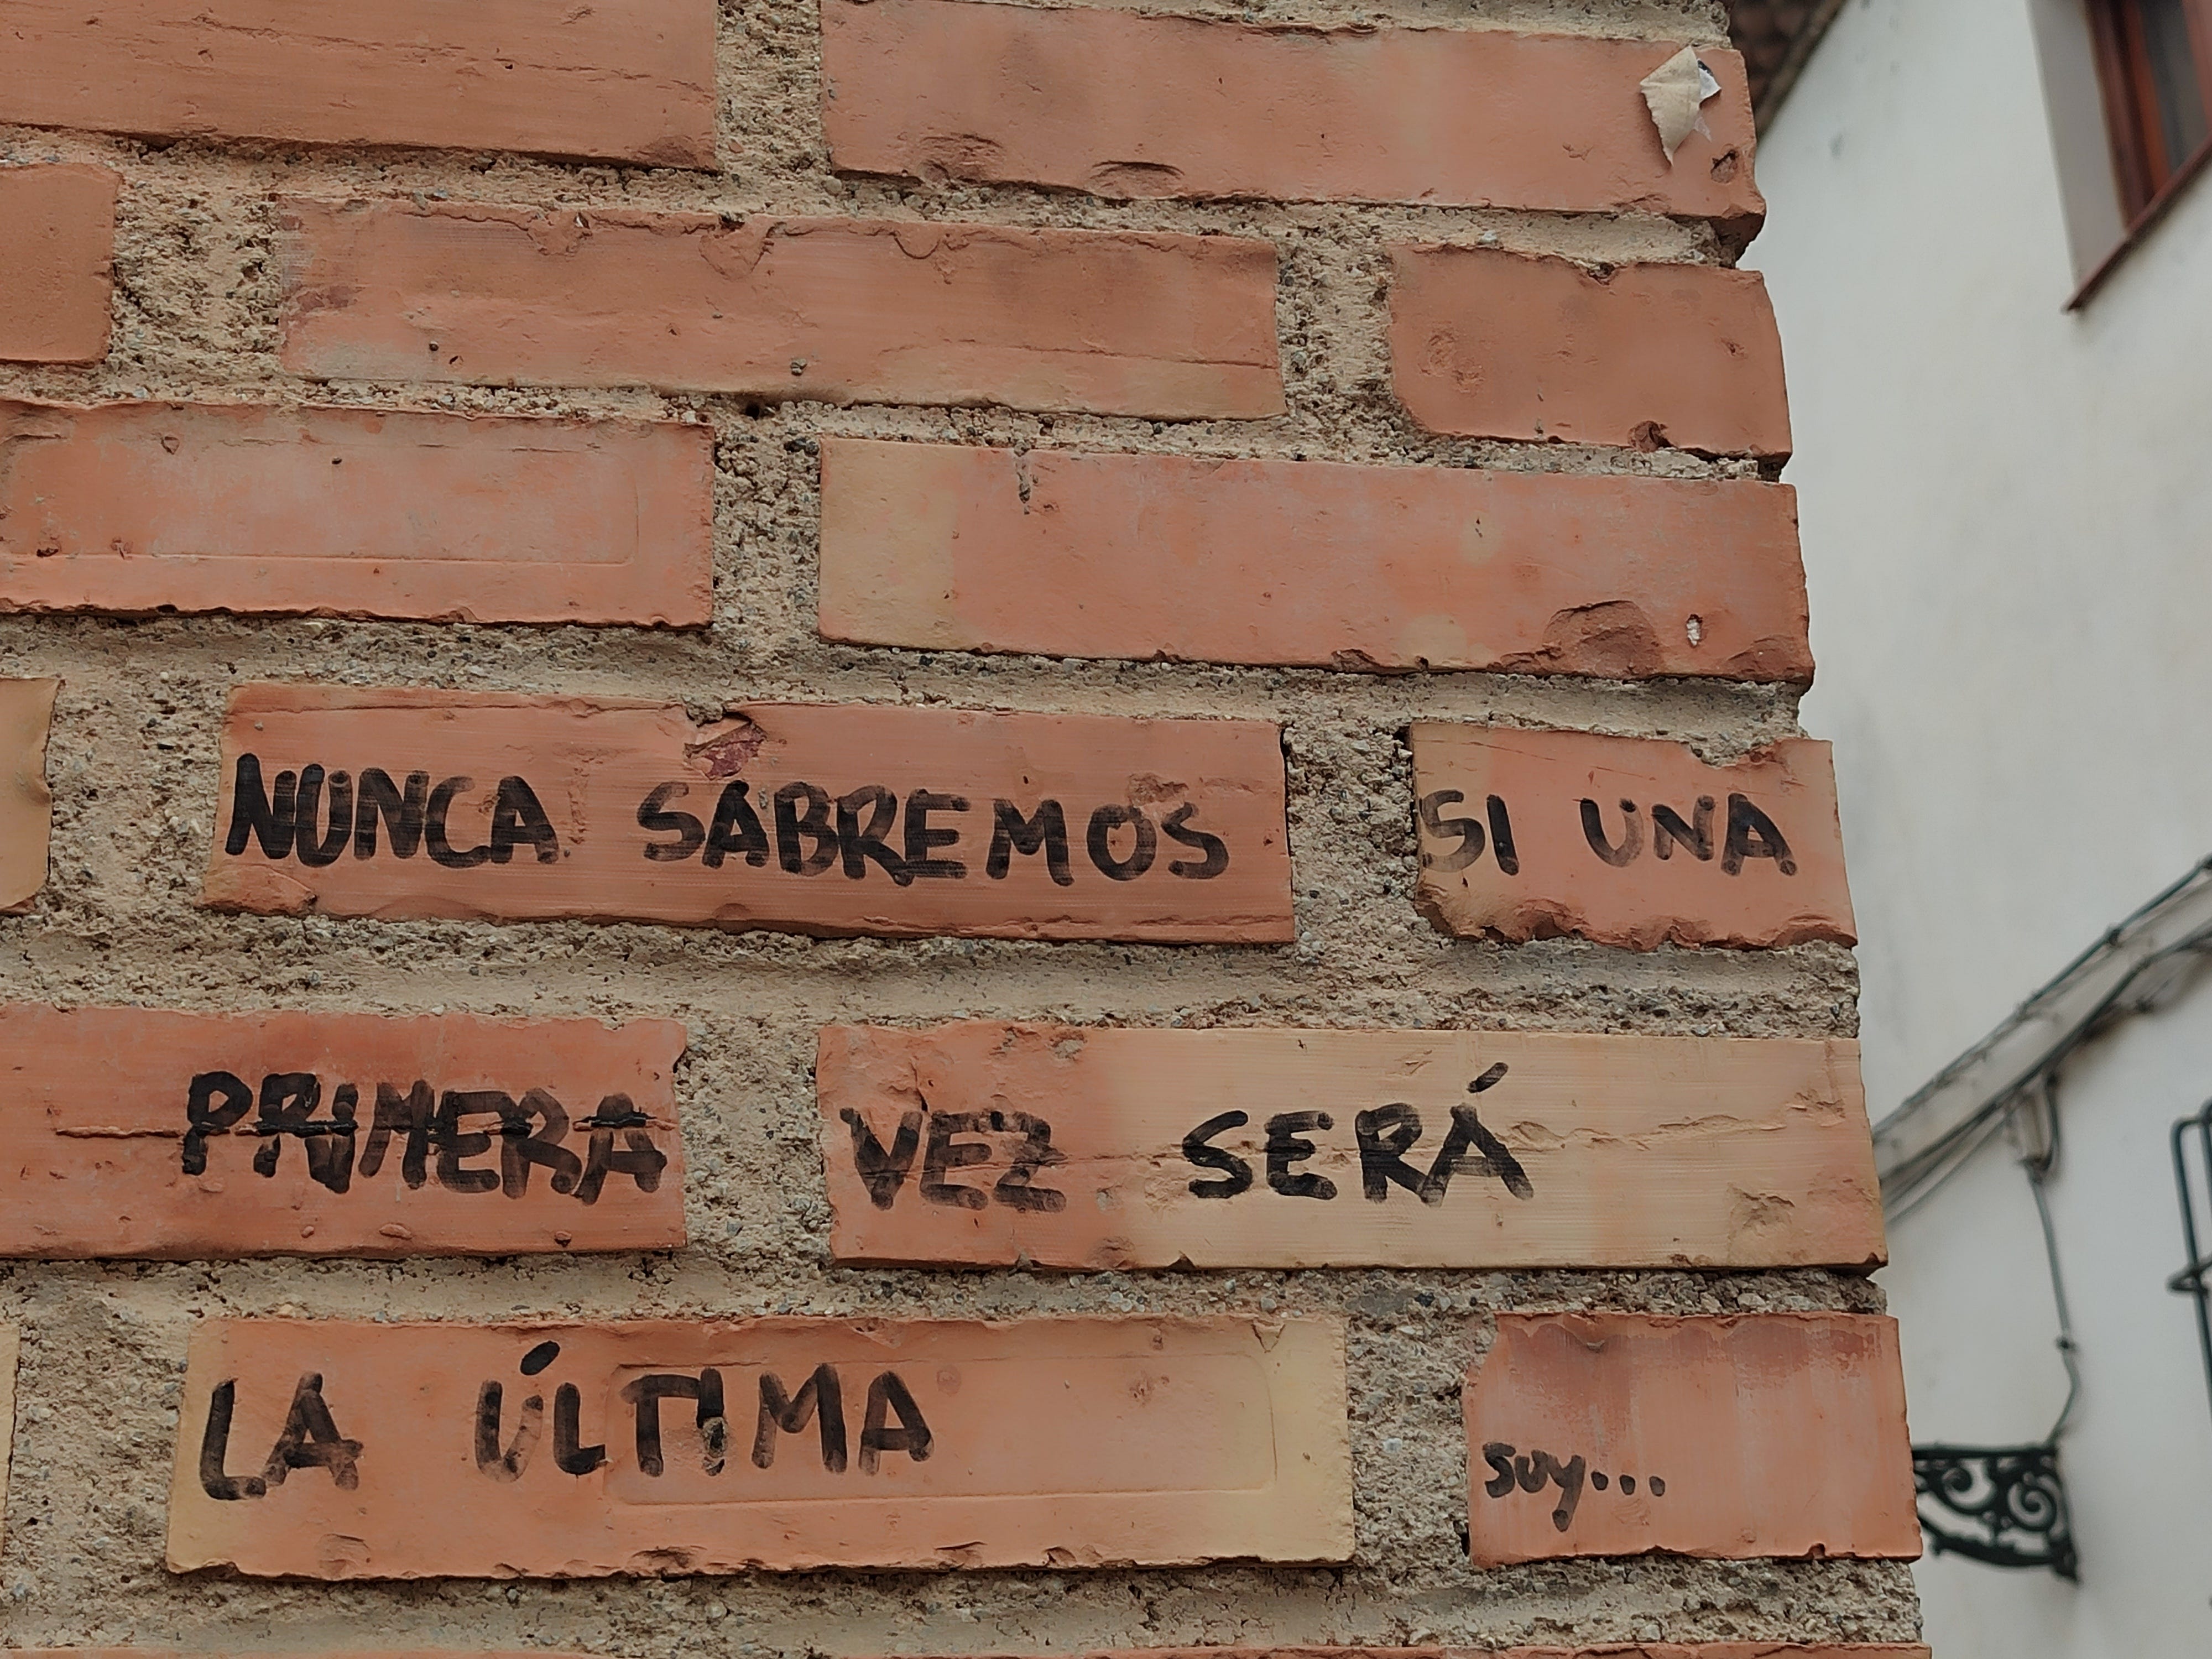 NUNCA SABREMOS SI UNA
PRIMERA VEZ SERÁ
LA ÚLTIMA
suy...